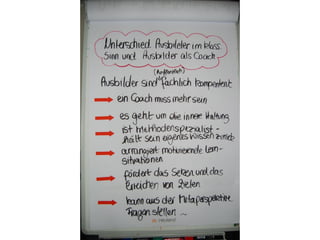 Unterschied Ausbilder im klass.
Sinn und Ausbilder als Coach
(Authentisch)
Ausbilder sind fachlich kompetent
ein Coach muss mehr sein
es geht um die innere Haltung
ist Methodenspezialist -
hält sein eigenes Wissen zurück
arrangiert motivierende Lern-
situationen
fördert das Setzen und das
Erreichen von Zielen
kann aus der Metaperspektive
Fragen stellen